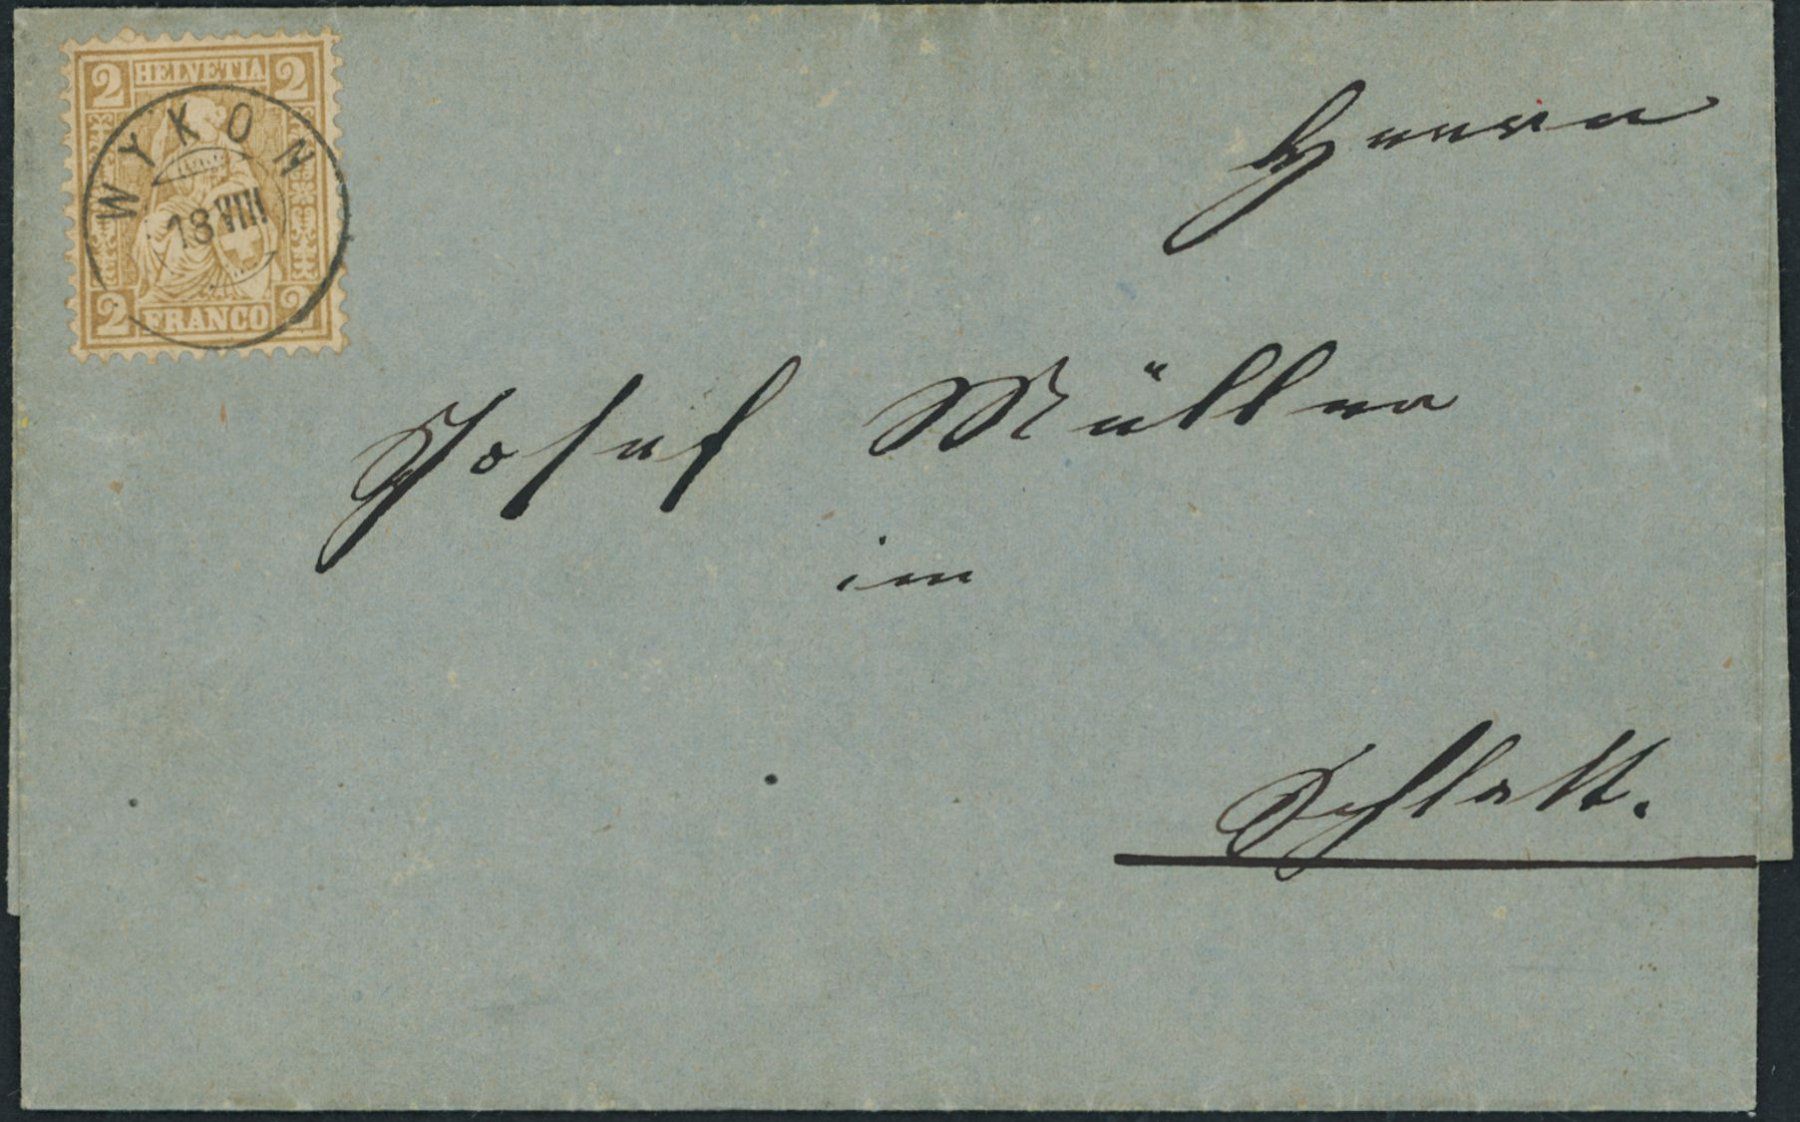 2 HELVETIA 2
WYKON
18 VIII
2 FRANCO 2
Herrn
Josef Müller
im
Schlatt.